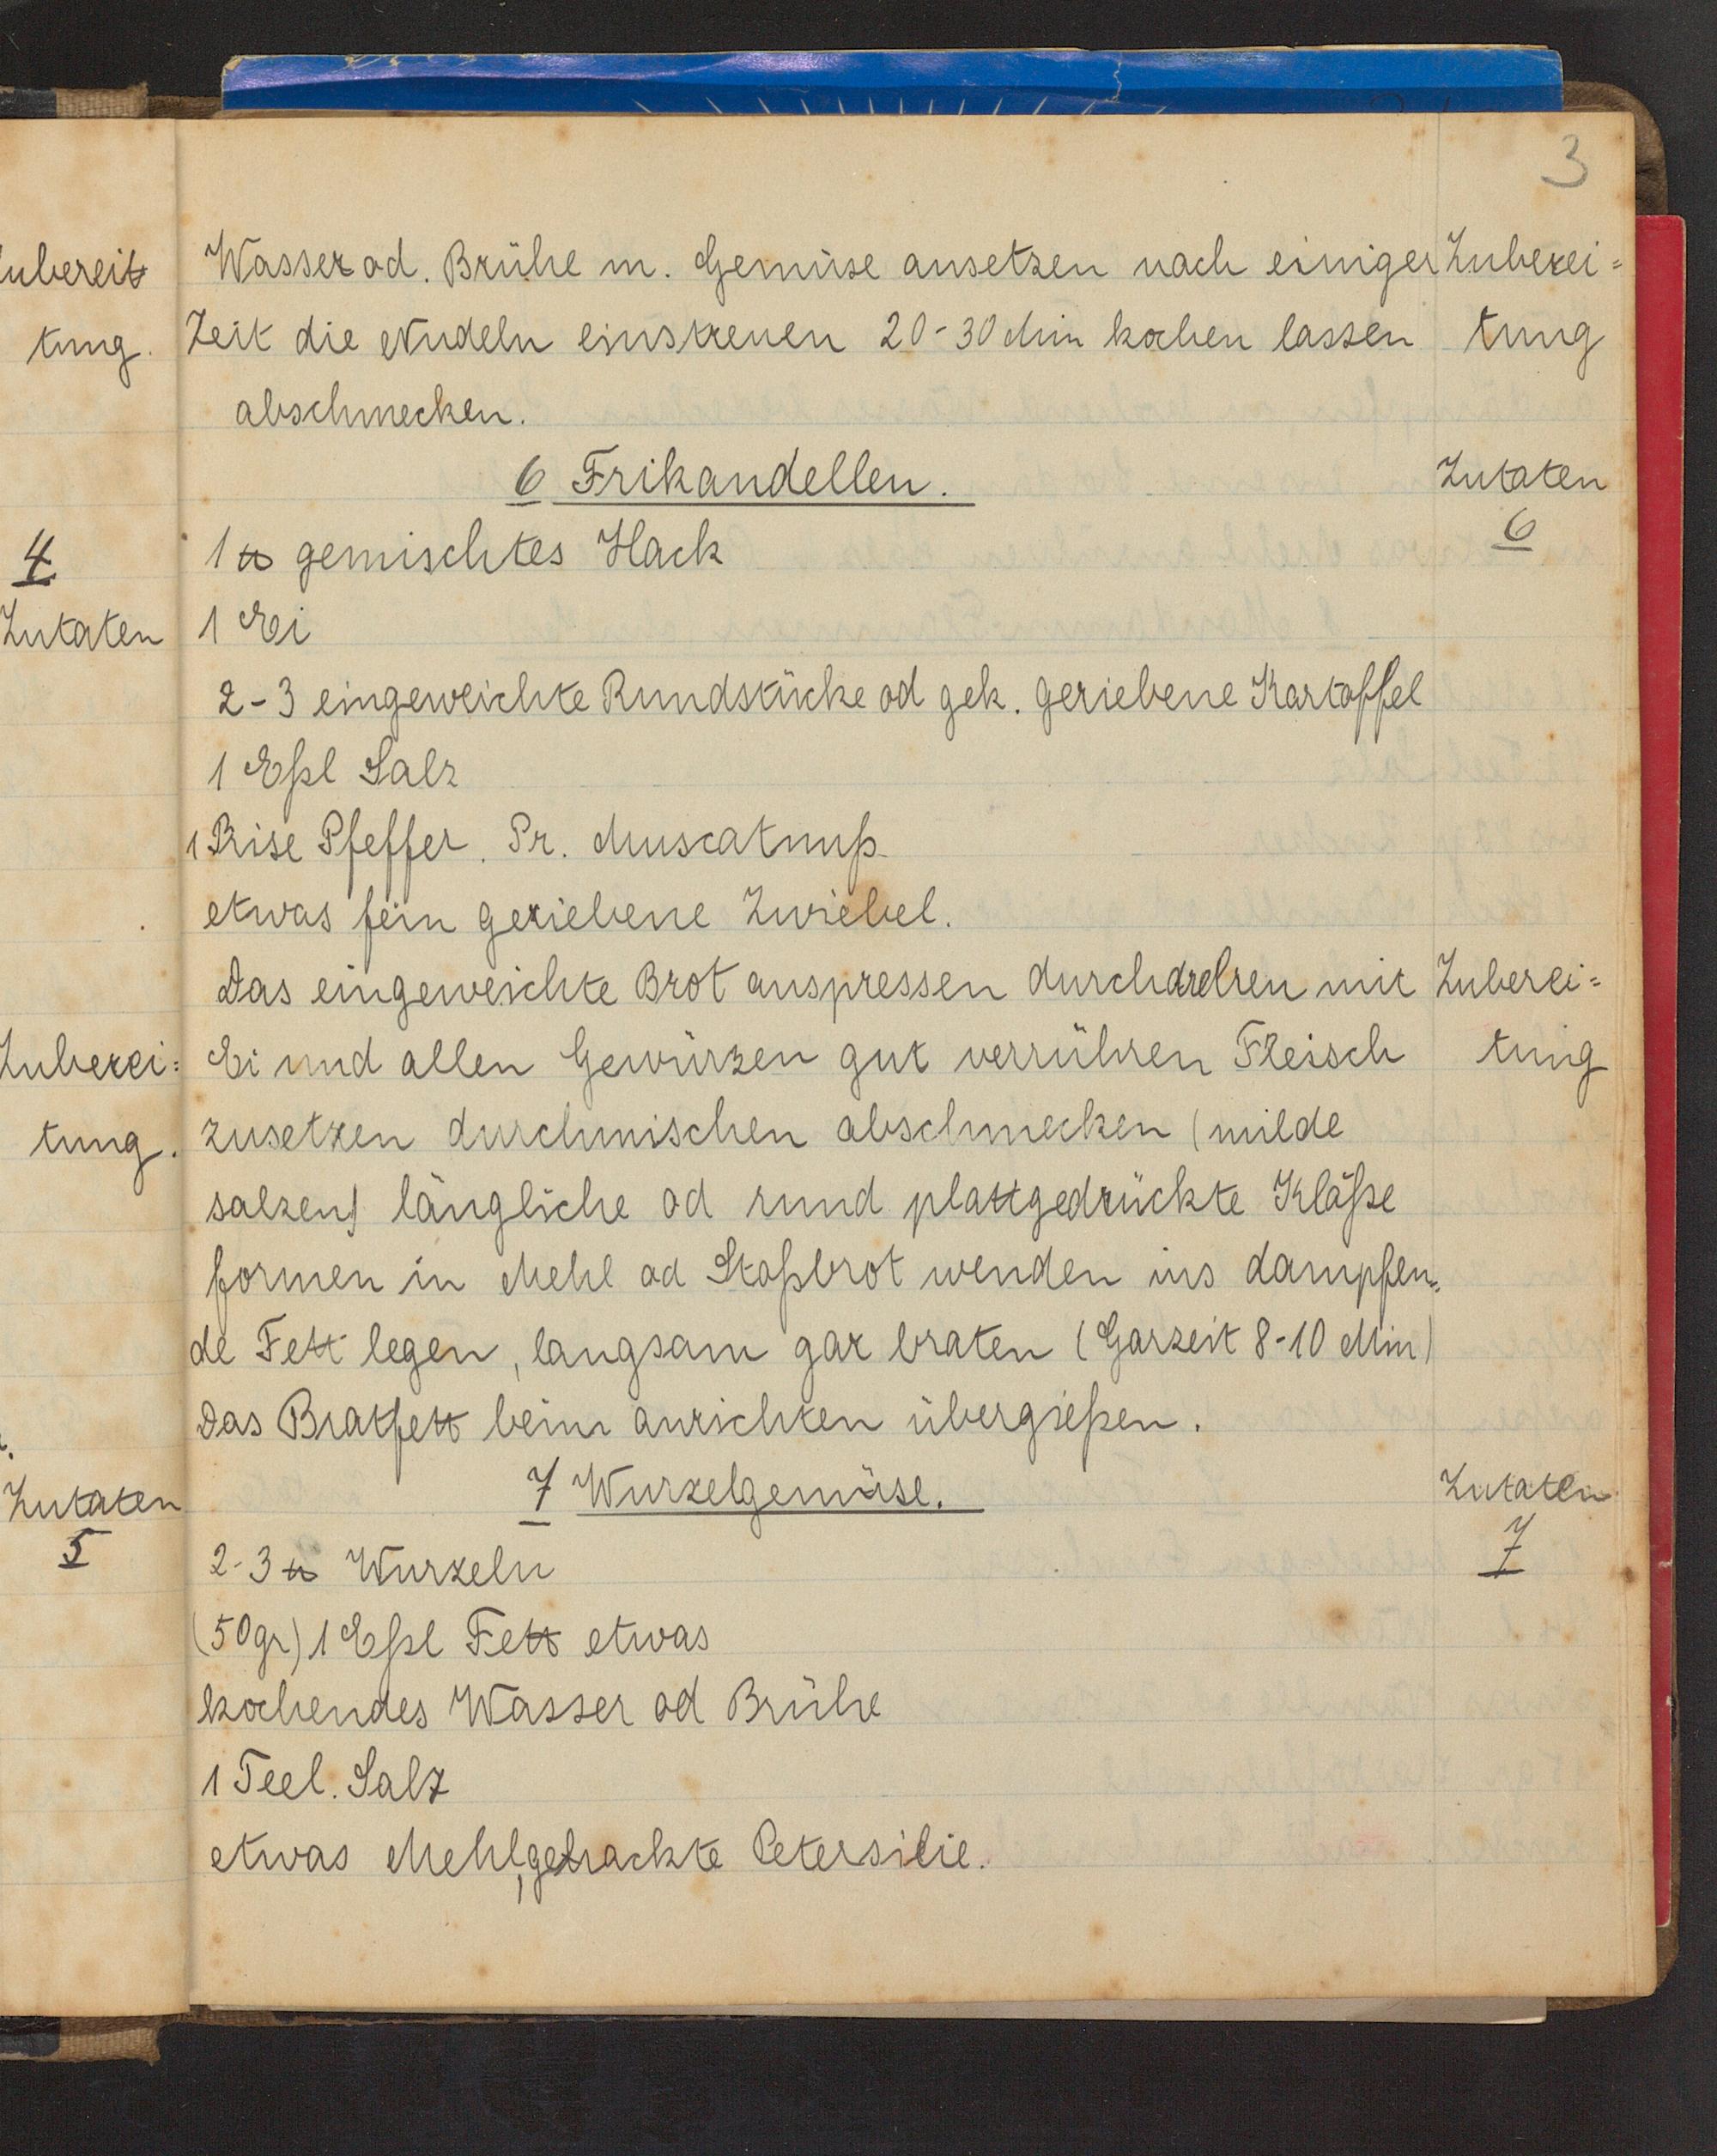 3
ubereit
tung.
4
Zutaten
Zuberei=
tung.
Zutaten
5
Wasser od. Brühe m. Gemüse ansetzen nach einiger Zuberei=
Zeit die Nudeln einstreuen 20-30 Min kochen lassen tung
abschmecken.
6 Frikandellen. Zutaten
6
1 ℔ gemischtes Hack
1 Ei
2-3 eingeweichte Rundstücke od gek. geriebene Kartoffel
1 Eßl Salz
1 Prise Pfeffer. Pr. Muscatnuß
etwas fein geriebene Zwiebel.
Das eingeweichte Brot auspressen durchdrehen mit Zuberei=
Ei und allen Gewürzen gut verrühren Fleisch tung
zusetzen durchmischen abschmecken (milde
salzen) längliche od rund plattgedrückte Klöße
formen in Mehl od Stoßbrot wenden ins dampfen=
de Fett legen, langsam gar braten (Garzeit 8-10 Min)
Das Bratfett beim anrichten übergießen.
7 Wurzelgemüse. Zutaten
7
2-3 ℔ Wurzeln
(50gr) 1 Eßl Fett etwas
kochendes Wasser od Brühe
1 Teel. Salz
etwas Mehl, gehackte Petersilie.